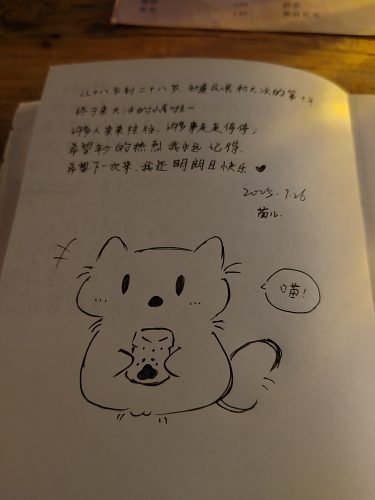 从十八岁到二十八岁,知道和大冰的第十年
终于来大冰的小屋啦~
许多人来来往往,许多事走走停停,
希望的热烈我永远记得.
希望下一次来,我还明朗且快乐 ♥
2025.7.26
苗儿.
喵!